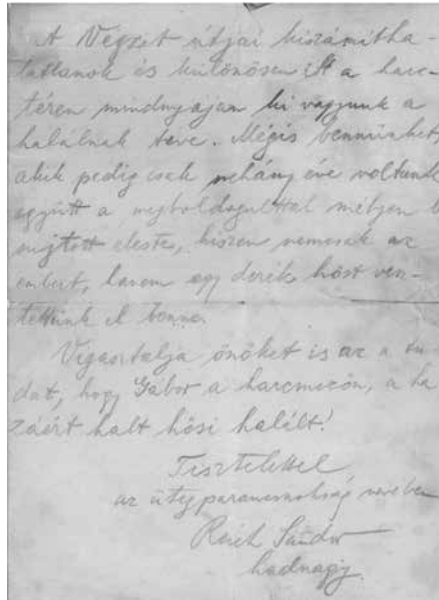 A Végzet útjai kiszámítha-
tatlanok és különösen itt a harc-
téren mindnyájan ki vagyunk a
halálnak téve. Mégis bennünket,
akik pedig csak néhány éve voltunk
együtt a megboldogulttal mélyen
sujtott eleste, hiszen nemcsak az
embert, hanem egy derék hőst ven-
tettünk el benne.
Vigasztalja önöket is az a tu-
dat, hogy Gábor a harcmezőn, a ha
záért halt hősi halált!
Tisztelettel
az ütegparancsnokság nevében
Reich Sándor
hadnagy.